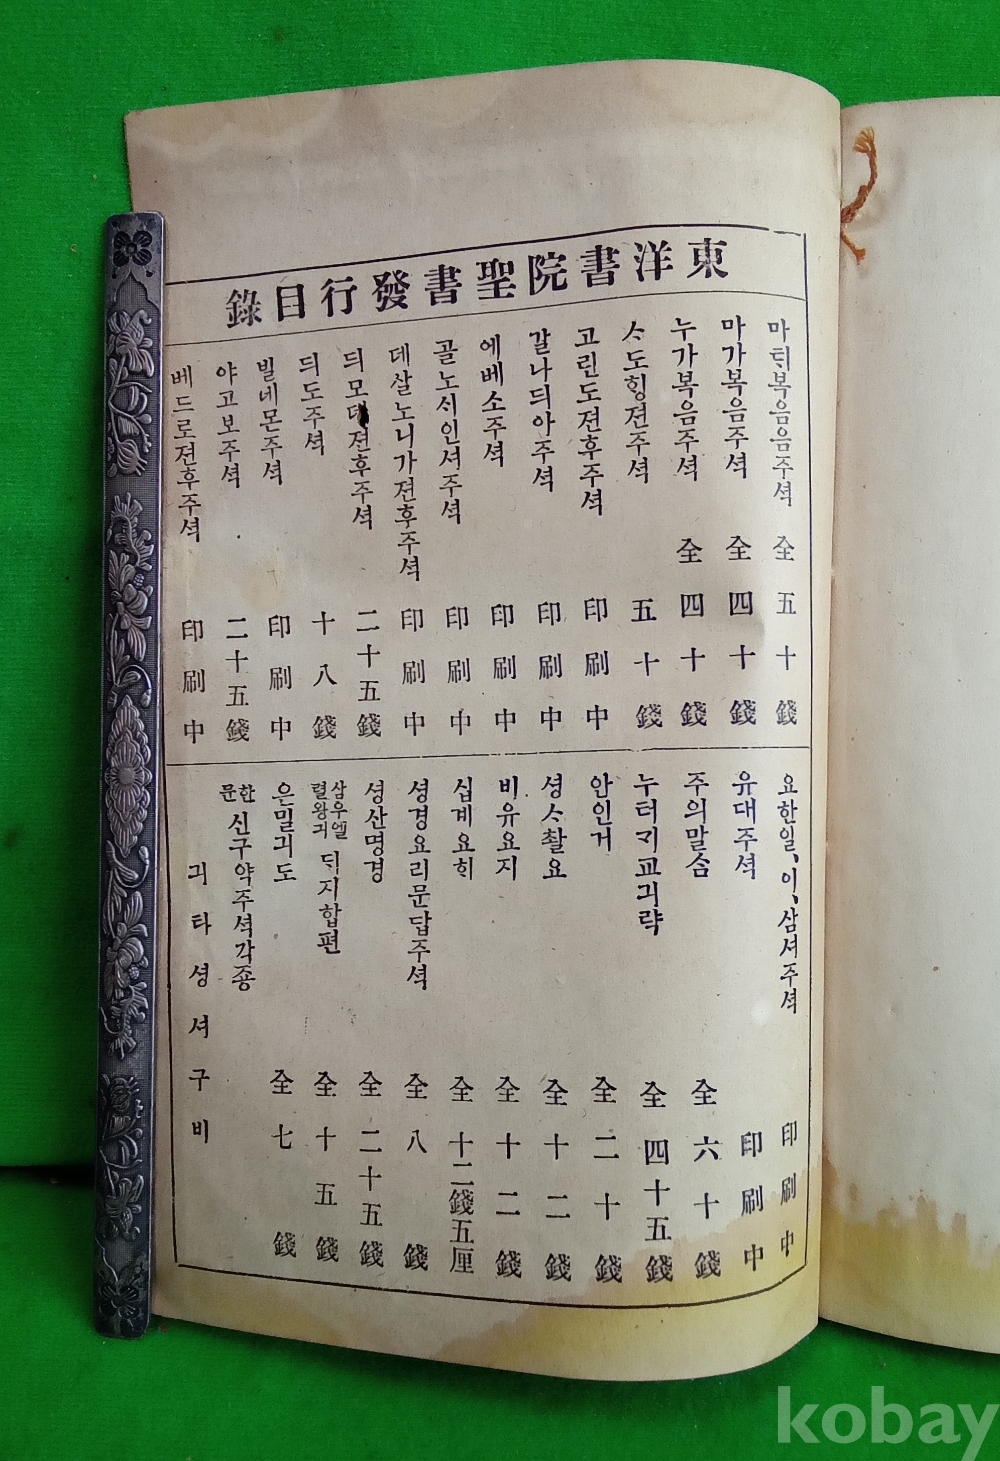 東洋書院聖書發行目錄
마ᄐᆡ복음음주셕 全五十錢
마가복음주셕 全四十錢
누가복음주셕 全四十錢
ᄉᆞ도ᄒᆡᆼ젼주셕 五十錢
고린도젼후주셕 印刷中
갈나듸아주셕 印刷中
에베소주셕 印刷中
골노시인셔주셕 印刷中
데살노니가젼후주셕 印刷中
듸모데젼후주셕 二十五錢
듸도주셕 十八錢
빌네몬주셕 印刷中
야고보주셕 二十五錢
베드로젼후주셕 印刷中
요한일、이、삼셔주셕 印刷中
유대주셕 印刷中
주의말ᄉᆞᆷ 全六十錢
누터ᄀᆡ교긔략 全四十五錢
안인거 全二十錢
셩ᄉᆞ촬요 全十二錢
비유요지 全十二錢
십계요ᄒᆡ 全十二錢五厘
셩경요리문답주셕 全八錢
셩산명경 全二十五錢
삼우엘렬왕긔 ᄃᆡ지합편 全十五錢
은밀긔도 全七錢
한문신구약주셕각종
긔타셩셔구비
kobay